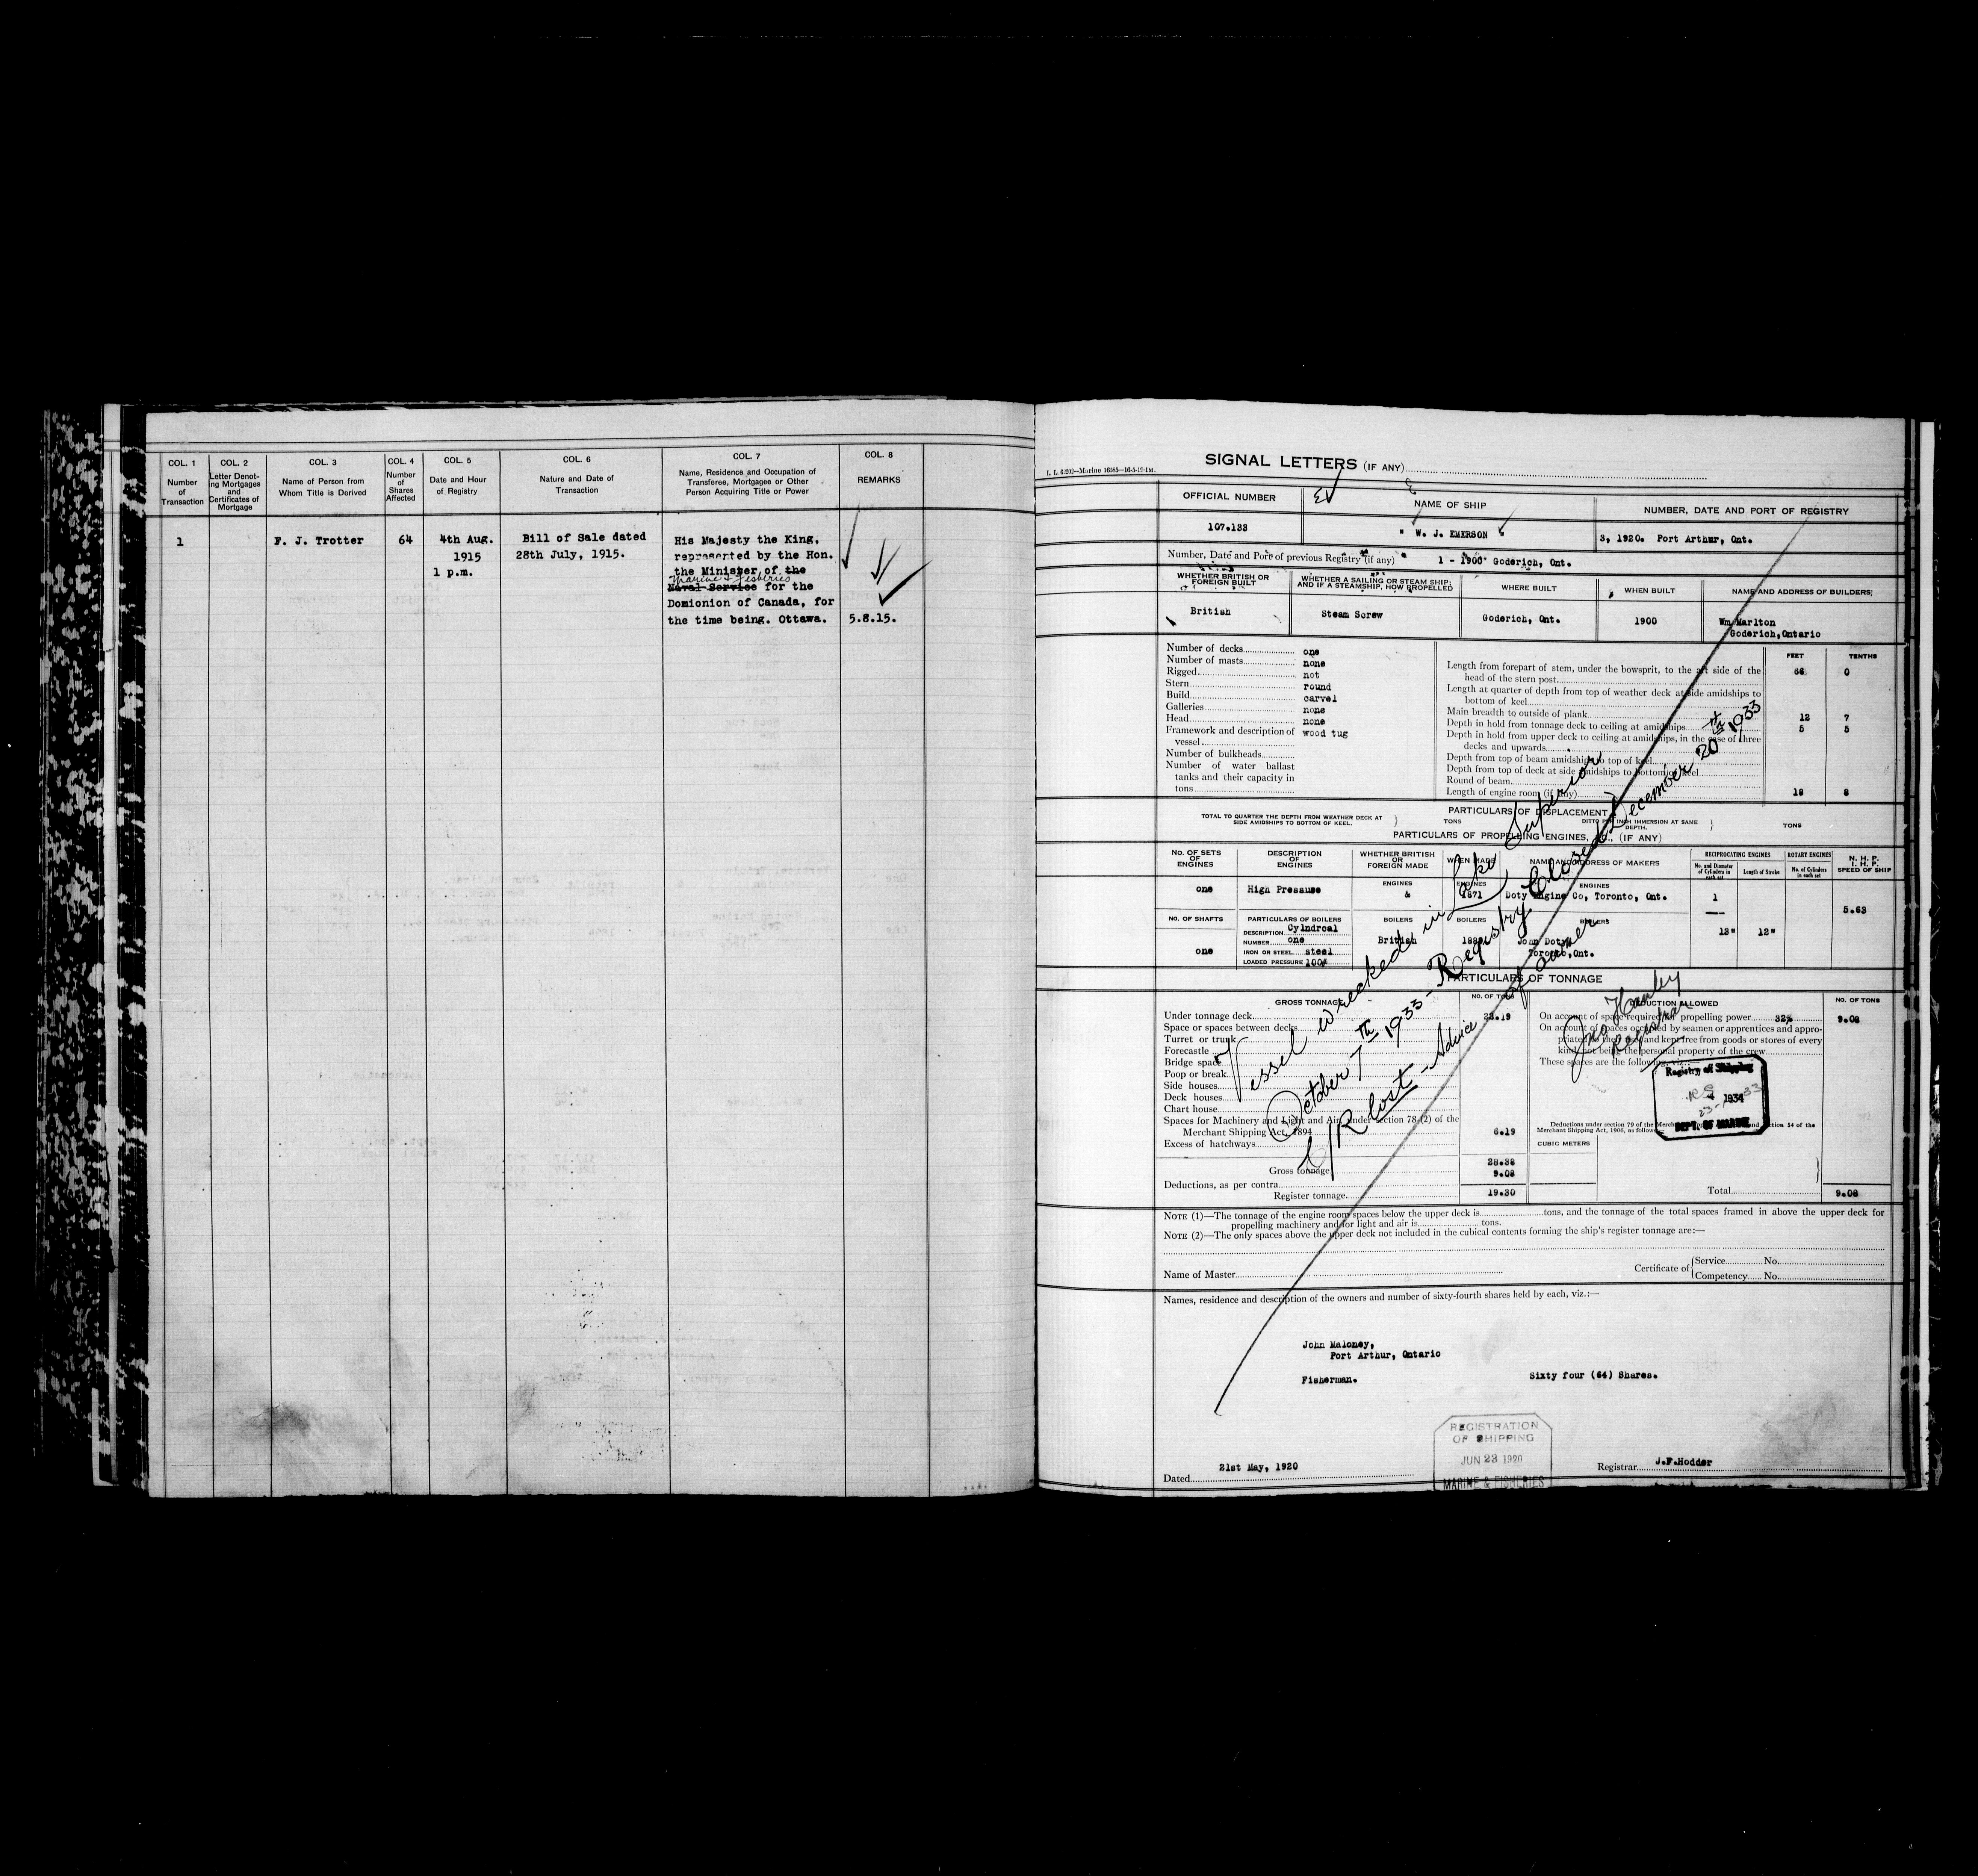 COL. 1
Number
of
Transaction
COL. 2
Letter Denot-
ing Mortgages
and
Certificates of
Mortgage
COL. 3
Name of Person from
Whom Title is Derived
COL. 4
Number
of
Shares
Affected
COL. 5
Date and Hour
of Registry
COL. 6
Nature and Date of
Transaction
COL. 7
Name, Residence and Occupation of
Transferee, Mortgagee or Other
Person Acquiring Title or Power
COL. 8
REMARKS
1
F. J. Trotter
64
4th Aug.
1915
1 p.m.
Bill of Sale dated
28th July, 1915.
His Majesty the King,
represented by the Hon.
the Minister of the
Marine & Fisheries
Naval Service for the
Domionion of Canada, for
the time being. Ottawa.
5.8.15.
SIGNAL LETTERS (IF ANY)
OFFICIAL NUMBER
NAME OF SHIP
NUMBER, DATE AND PORT OF REGISTRY
107.133
" W. J. EMERSON "
3, 1920. Port Arthur, Ont.
Number, Date and Port of previous Registry (if any)
1 - 1900 Goderich, Ont.
WHETHER BRITISH OR
FOREIGN BUILT
WHETHER A SAILING OR STEAM SHIP;
AND IF A STEAMSHIP, HOW PROPELLED
WHERE BUILT
WHEN BUILT
NAME AND ADDRESS OF BUILDERS
British
Steam Screw
Goderich, Ont.
1900
Wm Marlton
Goderich, Ontario
Number of decks one
Number of masts none
Rigged not
Stern round
Build carvel
Galleries none
Head none
Framework and description of
vessel wood tug
Number of bulkheads
Number of water ballast
tanks and their capacity in
tons
FEET TENTHS
Length from forepart of stem, under the bowsprit, to the aft side of the
head of the stern post 66 0
Length at quarter of depth from top of weather deck at side amidships to
bottom of keel
Main breadth to outside of plank 12 7
Depth in hold from tonnage deck to ceiling at amidships 5 5
Depth in hold from upper deck to ceiling at amidships, in the case of three
decks and upwards
Depth from top of beam amidships to top of keel
Depth from top of deck at side amidships to bottom of keel
Round of beam
Length of engine room (if any) 18 8
PARTICULARS OF DISPLACEMENT
TOTAL TO QUARTER THE DEPTH FROM WEATHER DECK AT
SIDE AMIDSHIPS TO BOTTOM OF KEEL.
TONS
DITTO PER INCH IMMERSION AT SAME
DEPTH.
TONS
PARTICULARS OF PROPELLING ENGINES, &c., (IF ANY)
No. OF SETS
OF
ENGINES
DESCRIPTION
OF
ENGINES
WHETHER BRITISH
OR
FOREIGN MADE
WHEN MADE
NAME AND ADDRESS OF MAKERS
RECIPROCATING ENGINES
No. and Diameter
of Cylinders in
each set
Length of Stroke
ROTARY ENGINES
No. of Cylinders
in each set
N. H. P.
I. H. P.
SPEED OF SHIP
one
High Pressure
ENGINES
&
ENGINES
1871
ENGINES
Doty Engine Co, Toronto, Ont.
1
5.63
No. OF SHAFTS
PARTICULARS OF BOILERS
BOILERS
BOILERS
BOILERS
one
DESCRIPTION Cylndrcal
NUMBER one
IRON OR STEEL steel
LOADED PRESSURE 100#
British
John Doty
Toronto, Ont.
13"
12"
PARTICULARS OF TONNAGE
GROSS TONNAGE
NO. OF TONS
DEDUCTION ALLOWED
NO. OF TONS
Under tonnage deck 22.19
Space or spaces between decks
Turret or trunk
Forecastle
Bridge space
Poop or break
Side houses
Deck houses
Chart house
Spaces for Machinery and Light and Air, under section 78 (2) of the
Merchant Shipping Act, 1894 6.19
Excess of hatchways
Gross tonnage 28.38
Deductions, as per contra 9.08
Register tonnage 19.30
On account of space required for propelling power 32% 9.08
On account of spaces occupied by seamen or apprentices and appro-
priated to their use, and kept free from goods or stores of every
kind, not being the personal property of the crew
These spaces are the following, viz.:—
CUBIC METERS
Total 9.08
Vessel wrecked in Lake Superior
October 7th 1933 - Registry Closed December 20th 1933
C/R lost - Advice of owner
Jno Hanley
Registrar
Registry of Shipping
1934
DEPT. OF MARINE
NOTE (1)—The tonnage of the engine room spaces below the upper deck is tons, and the tonnage of the total spaces framed in above the upper deck for
propelling machinery and for light and air is tons.
NOTE (2)—The only spaces above the upper deck not included in the cubical contents forming the ship's register tonnage are:—
Name of Master
Certificate of
Service No.
Competency No.
Names, residence and description of the owners and number of sixty-fourth shares held by each, viz.:—
John Maloney,
Port Arthur, Ontario
Fisherman.
Sixty four (64) Shares.
REGISTRATION
OF SHIPPING
JUN 23 1920
MARINE & FISHERIES
Dated 21st May, 1920
Registrar J.F.Hodder